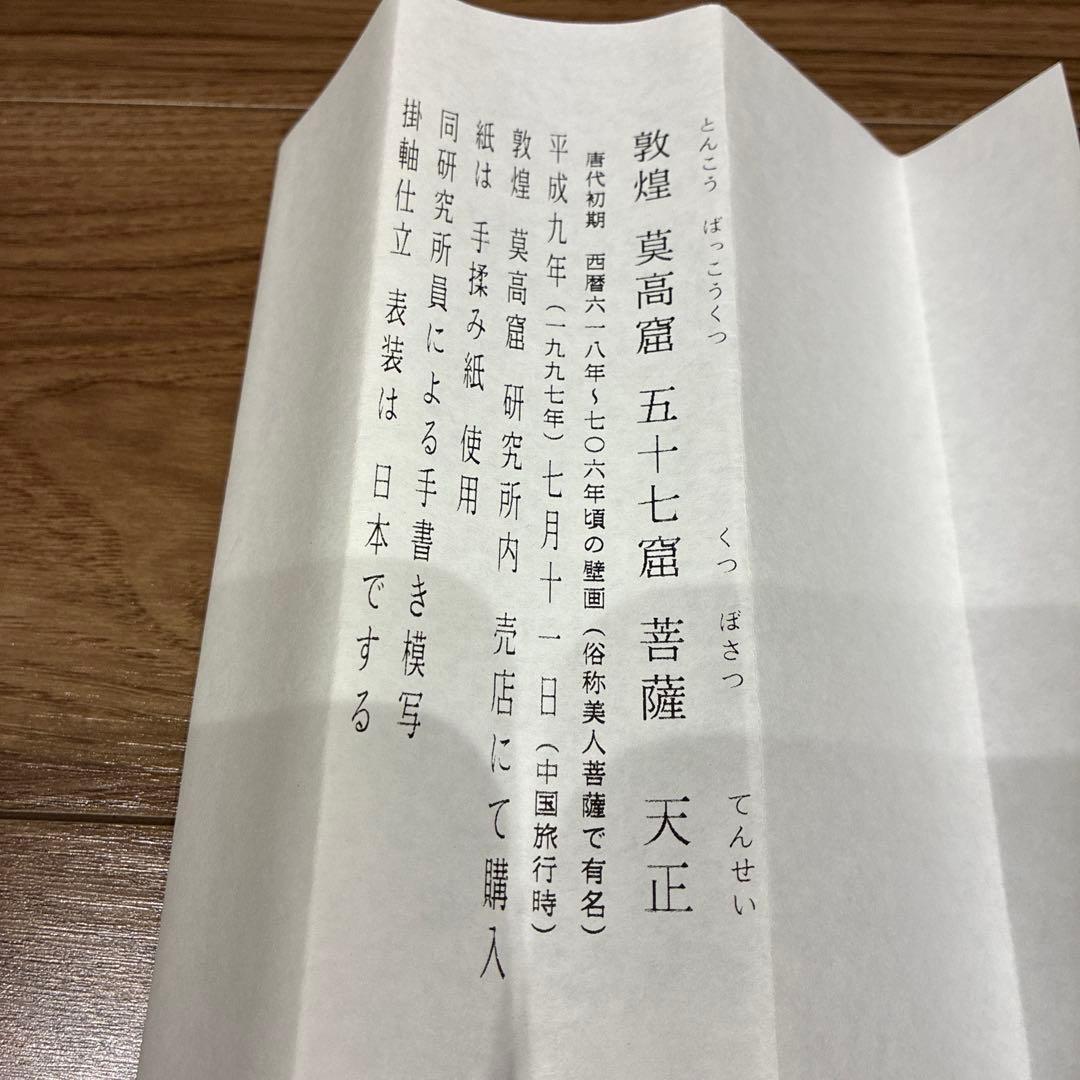 とんこう ばっこうくつ くつ ぼさつ てんせい
敦煌 莫高窟 五十七窟 菩薩 天正
唐代初期 西暦六一八年〜七〇六年頃の壁画(俗称美人菩薩で有名)
平成九年(一九九七年)七月十一日(中国旅行時)
敦煌 莫高窟 研究所内 売店にて購入
紙は 手揉み紙 使用
同研究所員による手書き模写
掛軸仕立 表装は 日本でする